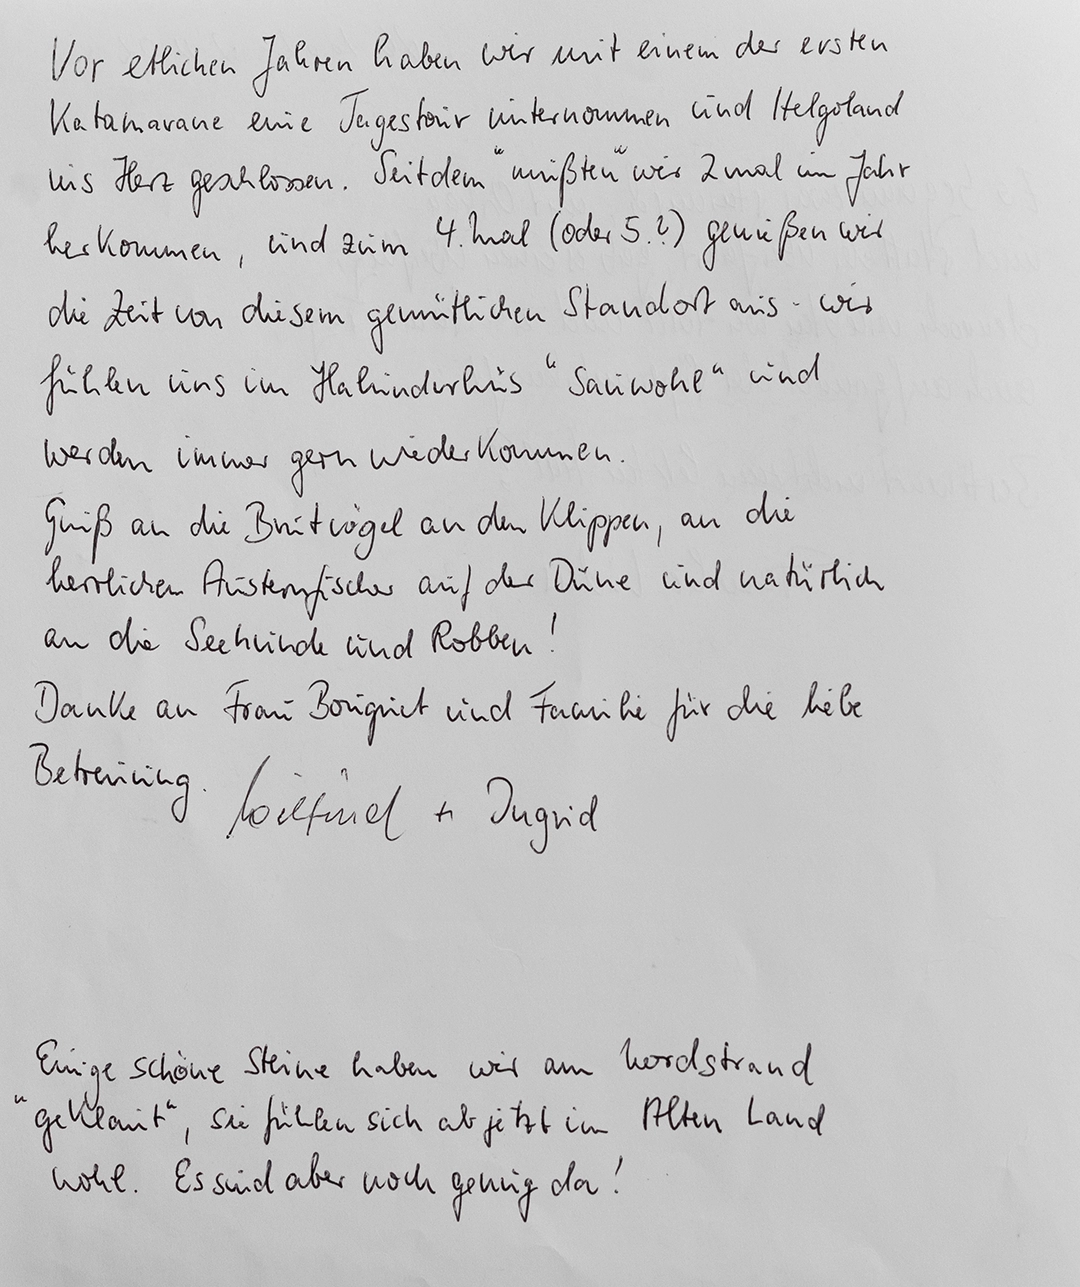 Vor etlichen Jahren haben wir mit einem der ersten
Katamarane eine Tagestour unternommen und Helgoland
ins Herz geschlossen. Seitdem "mußten" wir 2 mal im Jahr
herkommen, und zum 4. mal (oder 5.?) genießen wir
die Zeit von diesem gemütlichen Standort aus - wir
fühlen uns im Hahinderhüs "Sauwohl" und
werden immer gern wiederkommen.
Gruß an die Brutvögel an den Klippen, an die
herrlichen Austernfischer auf der Düne und natürlich
an die Seehunde und Robben!
Danke an Frau Bouquet und Familie für die liebe
Betreuung. Wilfried + Ingrid
Einige schöne Steine haben wir am Nordstrand
"geklaut", sie fühlen sich ab jetzt im Alten Land
wohl. Es sind aber noch genug da!